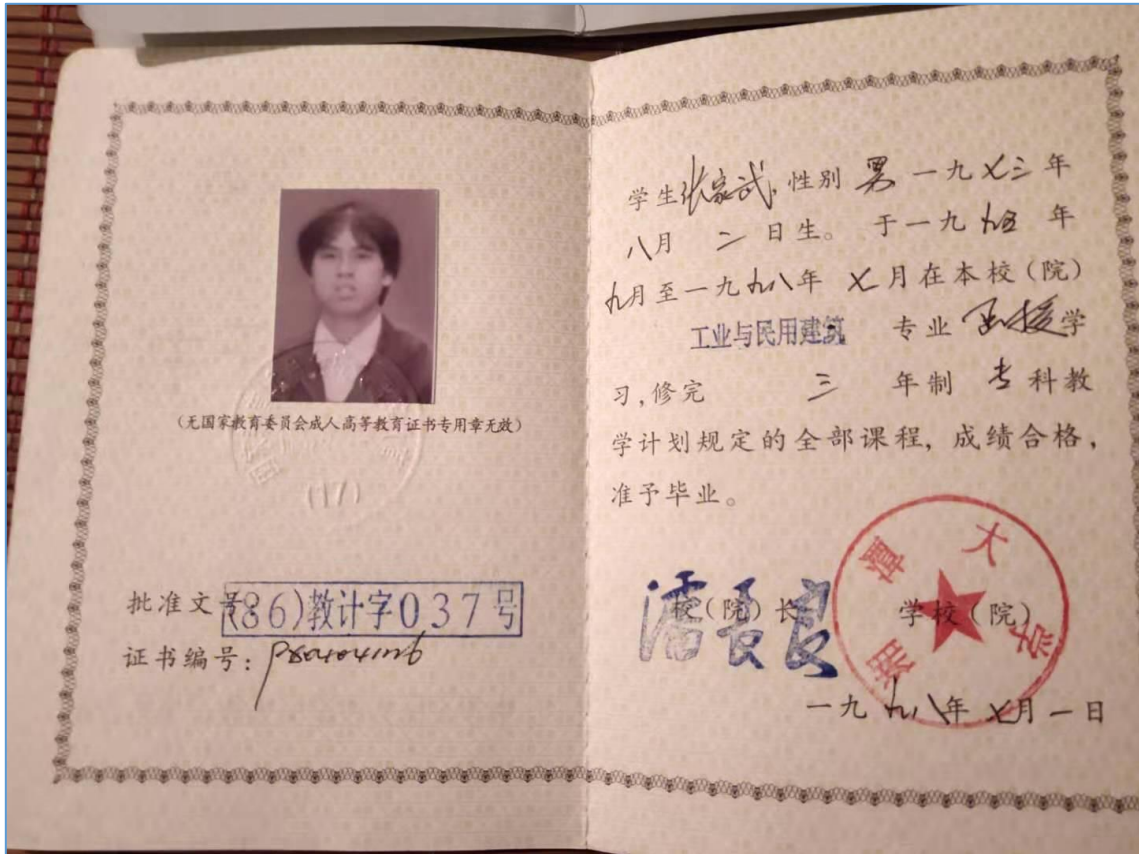 (无国家教育委员会成人高等教育证书专用章无效)
(17)
批准文号:(86)教计字037号
证书编号:
学生张家武,性别 男 一九七三年
八月 二 日生。 于一九九五 年
九月至一九九八年 七月在本校(院)
工业与民用建筑 专业 函授学
习,修完 三 年制 专科教
学计划规定的全部课程,成绩合格,
准予毕业。
校(院)长 学校(院)
湘潭大学
一九九八年 七月一日